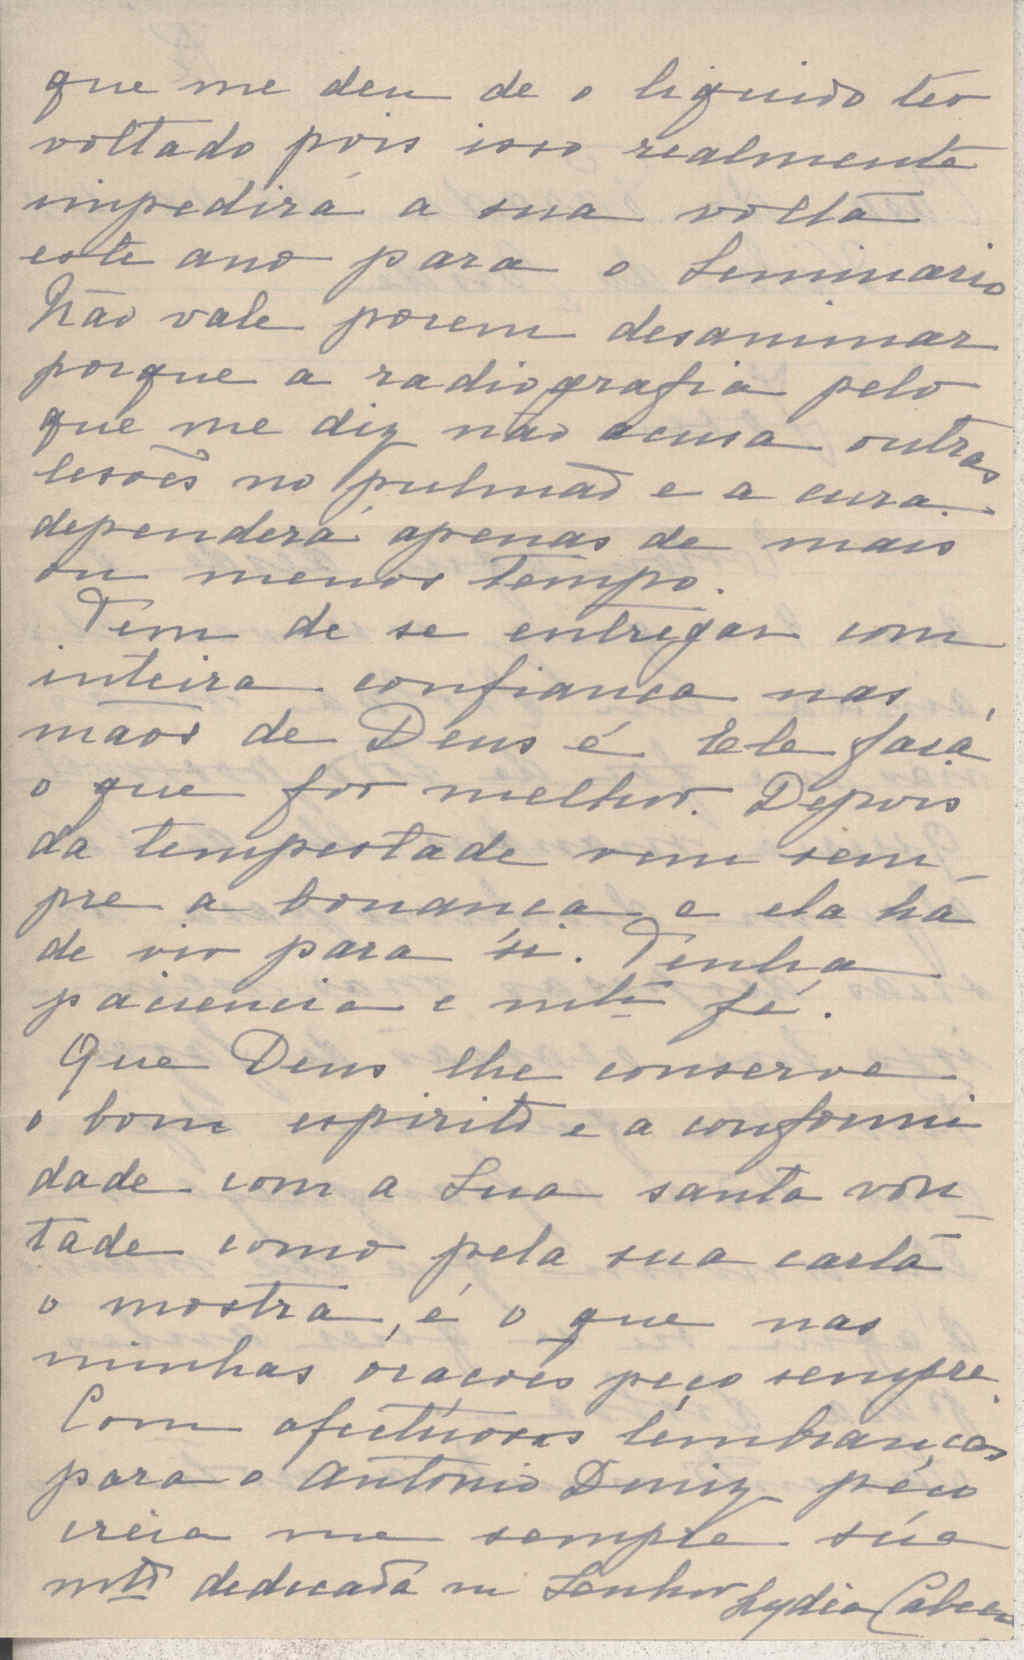 que me deu de o liquido ter
voltado pois isso realmente
impedirá a sua volta
este ano para o Seminario
Não vale porem desanimar
porque a radiografia pelo
que me diz não acusa outras
lesões no pulmão e a cura
dependerá apenas de mais
ou menos tempo.
Tem de se entregar com
inteira confiança nas
mãos de Deus é Ele fará
o que for melhor. Depois
da tempestade vem sem_
pre a bonança e ela há
de vir para si. Tenha
paciencia e mta fé.
Que Deus lhe conserve
o bom espirito e a conformi
dade com a Sua santa von_
tade como pela sua carta
o mostra, é o que nas
minhas orações peço sempre.
Com afectuosas lembranças
para o Antonio Diniz peço
creia me sempre sua
mto dedicada no Senhor Lydia